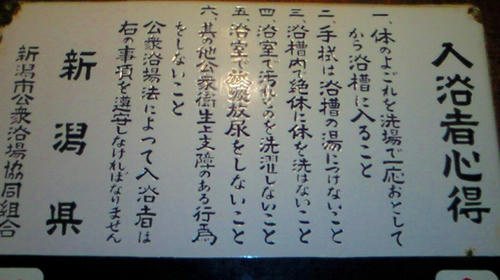 入浴者心得
一、体のよごれを洗場で一応おとして
から浴槽に入ること
二、手拭は浴槽の湯につけないこと
三、浴槽内で絶体に体を洗はないこと
四、浴室で汚れものを洗濯しないこと
五、浴室で放尿をしないこと
六、其の他公衆衛生上支障のある行為
をしないこと
公衆浴場法によって入浴者は
右の事項を遵守しなければなりません
新潟県
新潟市公衆浴場協同組合